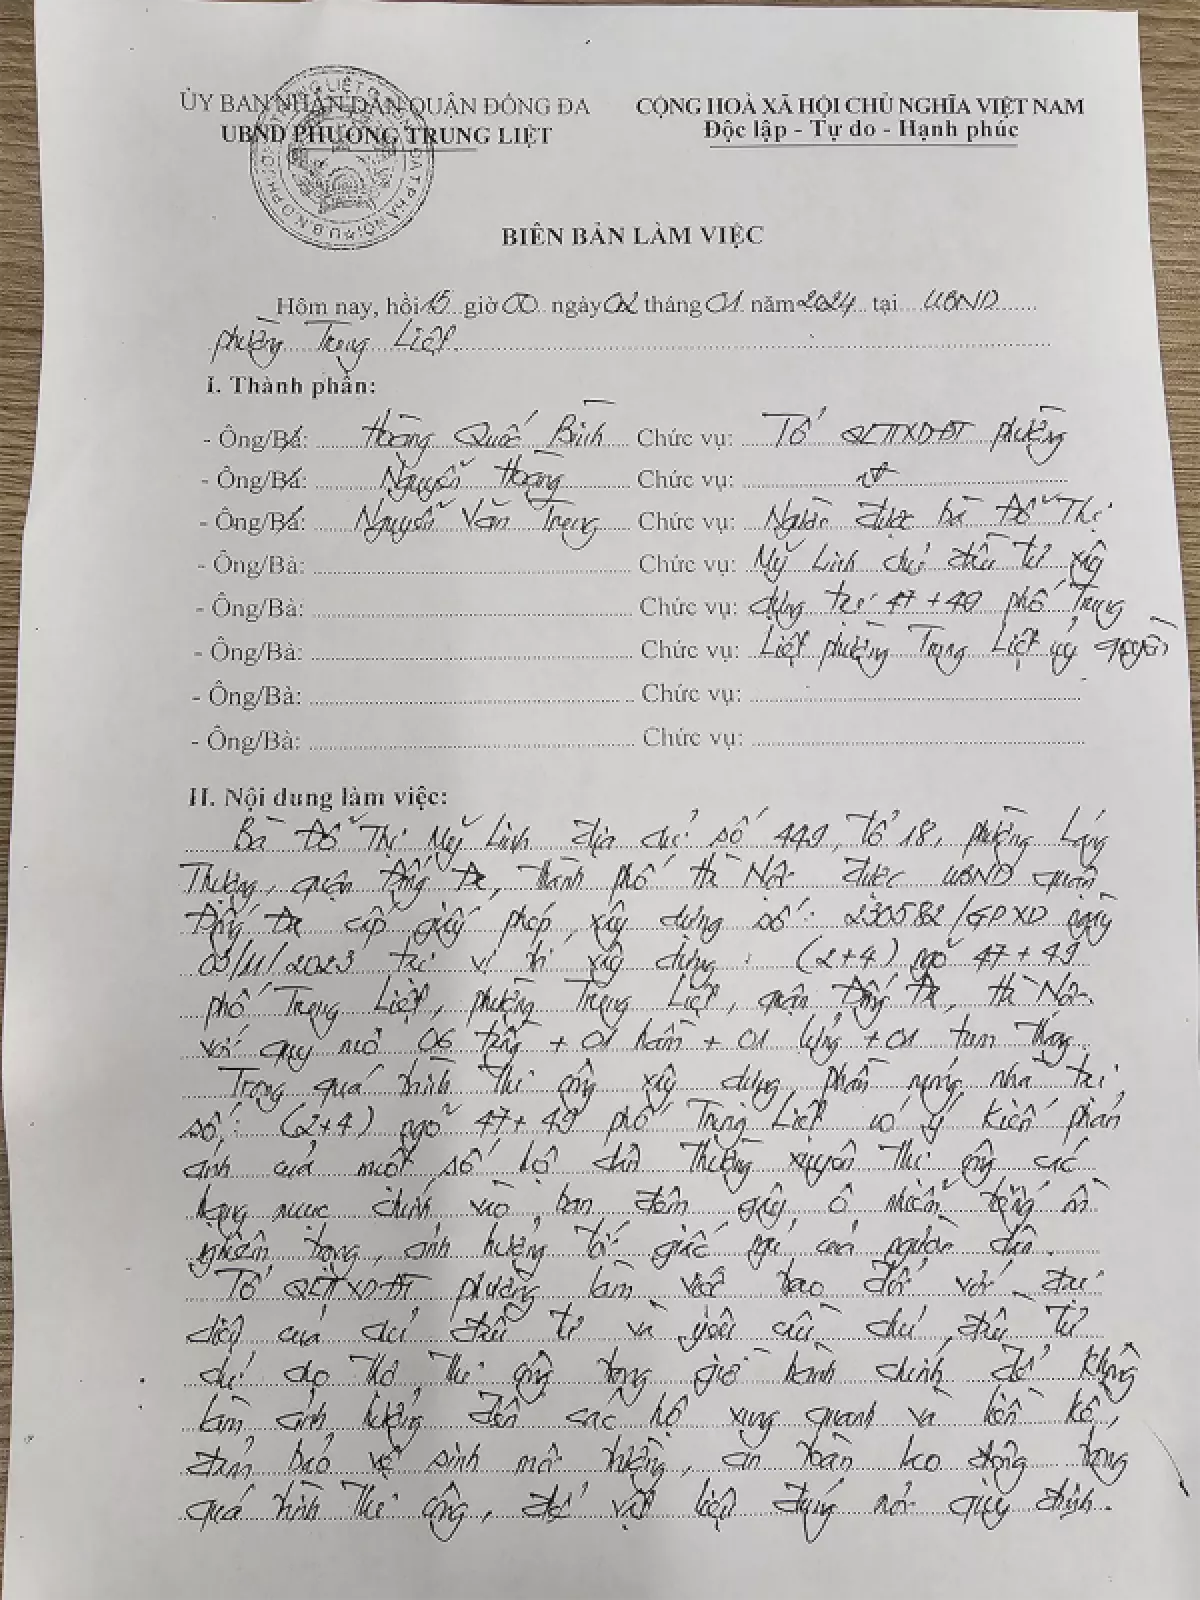 ỦY BAN NHÂN DÂN QUẬN ĐỐNG ĐA
UBND PHƯỜNG TRUNG LIỆT
CỘNG HOÀ XÃ HỘI CHỦ NGHĨA VIỆT NAM
Độc lập - Tự do - Hạnh phúc
BIÊN BẢN LÀM VIỆC
Hôm nay, hồi 15 giờ 00 ngày 02 tháng 01 năm 2024 tại UBND
phường Trung Liệt
I. Thành phần:
- Ông/Bà: Hoàng Quốc Bình Chức vụ: Tổ QLTTXDĐT phường
- Ông/Bà: Nguyễn Hoàng Chức vụ:
- Ông/Bà: Nguyễn Văn Trung Chức vụ: Người được bà Đỗ Thị
- Ông/Bà: Chức vụ: Mỹ Linh chủ đầu tư xây
- Ông/Bà: Chức vụ: dựng tại 47+49 phố Trung
- Ông/Bà: Chức vụ: Liệt phường Trung Liệt uỷ quyền
- Ông/Bà: Chức vụ:
- Ông/Bà: Chức vụ:
II. Nội dung làm việc:
Bà Đỗ Thị Mỹ Linh địa chỉ số 449, tổ 18, phường Láng
Thượng, quận Đống Đa, thành phố Hà Nội được UBND quận
Đống Đa cấp giấy phép xây dựng số: 230582/GPXD ngày
03/11/2023 tại vị trí xây dựng: (2+4) ngõ 47+49
phố Trung Liệt, phường Trung Liệt, quận Đống Đa, Hà Nội
với quy mô 06 tầng + 01 hầm + 01 lửng + 01 tum thang.
Trong quá trình thi công xây dựng phần móng nhà tại
số: (2+4) ngõ 47+49 phố Trung Liệt có ý kiến phản
ánh của một số hộ dân thường xuyên thi công các
hạng mục chính vào ban đêm gây ô nhiễm tiếng ồn
nghiêm trọng, ảnh hưởng tới giấc ngủ của người dân.
Tổ QLTTXDĐT phường làm việc trao đổi với đại
diện của chủ đầu tư và yêu cầu chủ đầu tư
chỉ cho thợ thi công trong giờ hành chính để không
làm ảnh hưởng đến các hộ xung quanh và liền kề,
đảm bảo vệ sinh môi trường, an toàn lao động trong
quá trình thi công, để vật liệu đúng nơi quy định.